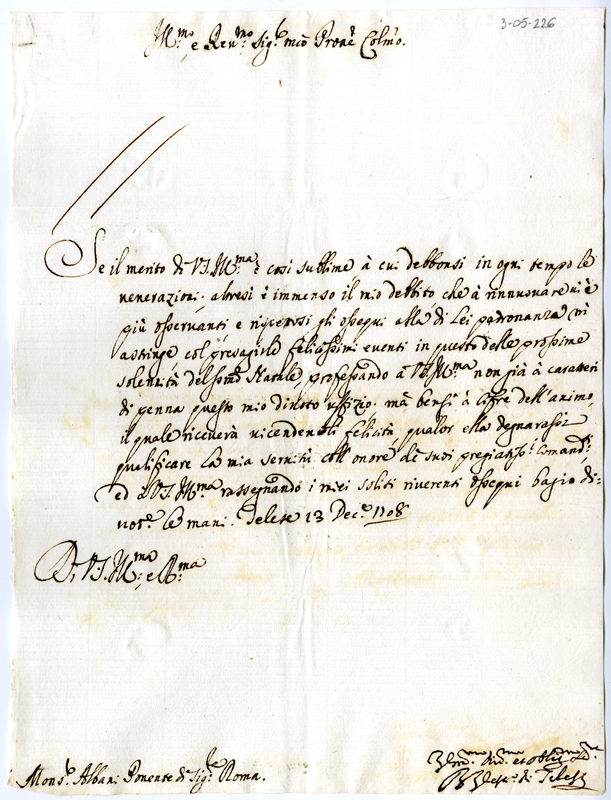 3-05-226
Ill.mo e Rev.mo Sig.r mio Prone Colmo.
Se il merito di V.S. Ill.ma è così sublime, à cui debbonsi in ogni tempo le
venerazioni, altresì è immenso il mio debbito, che à rinnovare i
più osservanti e riverenti gli ossequi alla di Lei padronanza mi
astringe col presagirle felicissimi eventi in queste delle prossime
solennità del Natale, professando a V.S. Ill.ma non già à caratteri
di penna questo mio divoto uffizio, mà bensì à cifre dell'animo,
il quale riceverà felicità, qualor ella degnarassi
qualificare la mia servitù coll'onore de suoi pregiatiss.i Comandi
ed à V.S. Ill.ma rassegnando i miei soliti riverenti ossequi bagio di-
vot.e le mani. Telese 13 Dec.e 1708
Di V.S. Ill.ma e R.ma
Mons.r Albani Ponente di Sig.re Roma.
di Telese